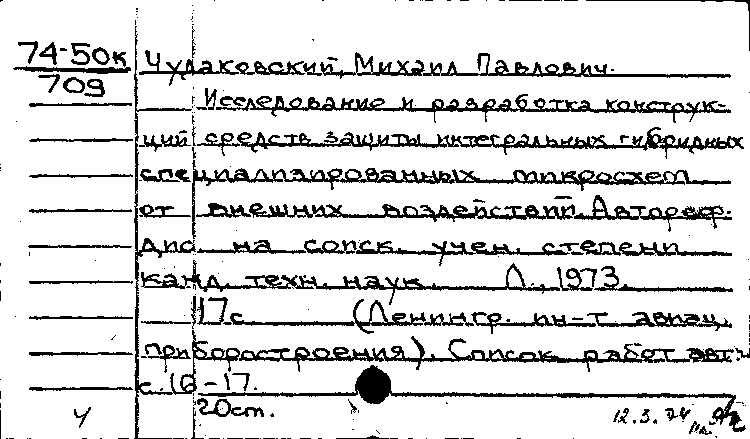 74-50к Чудаковский, Михаил Павлович.
709
Исследование и разработка конструк-
ций средств защиты интегральных гибридных
специализированных микросхем
от внешних воздействий. Автореф.
дис. на соиск. учен. степени
канд. техн. наук. Л., 1973.
17с (Ленингр. ин-т авиац.
приборостроения). Список работ авт.:
с. 16-17.
20ст.
Ч 12.3.74